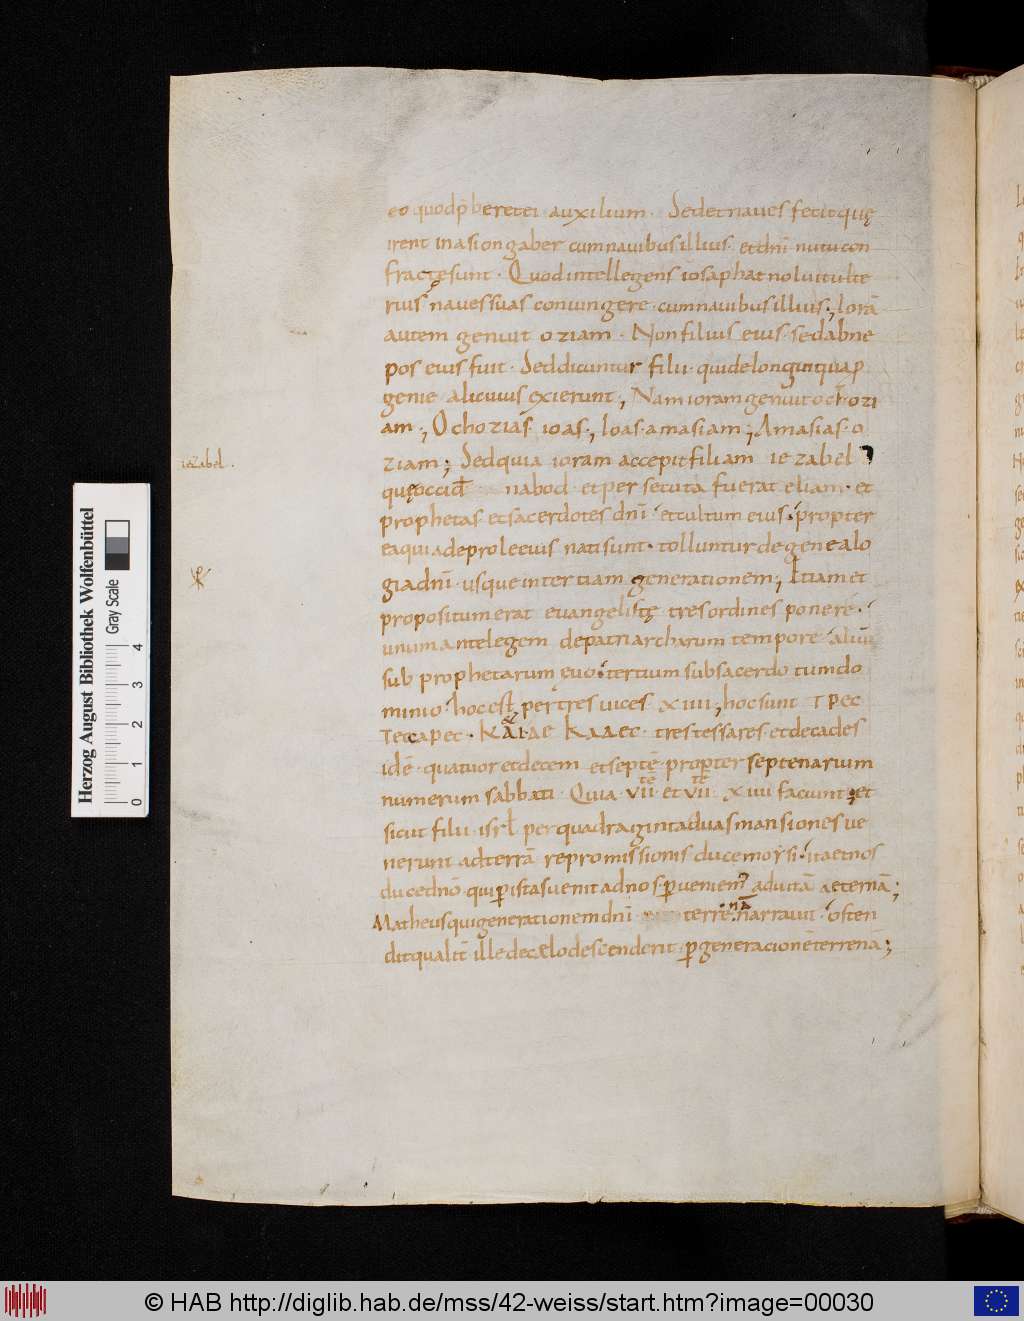 eo quod p̄beret ei auxilium · Sed et naues fecit quę
irent in asiongaber cum nauibus illius · et dn̄i nutu con
fractę sunt · Quod intellegens iosaphat noluit ulte
rius naues suas coniungere · cum nauibus illius ; Iorā
autem genuit oziam · Non filius eius · sed abne
pos eius fuit · Sed dicuntur filii · qui de longinqua p
genie alicuius exierunt , Nam ioram genuit och · ozi
am ; Ochozias · ioas ; Ioas · amasiam ; Amasias · o
ziam ; Sed quia ioram accepit filiam iezabel
iezabel .
quę occid nabod · et persecuta fuerat eliam · et
prophetas · et sacerdotes dn̄i · et cultum eius · propter
ea quia de prole eius nati sunt · tolluntur de genealo
gia dn̄i · usque in tertiam generationem ; Etiam et
propositum erat euangelistę tres ordines ponere ·
unum ante legem de patriarcharum tempore · aliū
sub prophetarum ęuo · tertium sub sacerdotum do
minio · hoc est per tres uices · xiiii , hoc sunt ΤΡЄC
ΤЄCCΑΡЄC · ΚΑΙ ΔЄΚΑΔЄC · tres tessares · et decades
idē · quatuor et decem et septē · propter septenarium
numerum sabbati · Quia · vii tē et vii tē · xiiii faciunt · et
sicut filii · isrl̄ per quadraginta duas mansiones ue
nerunt ad terrā repromissionis duce moysi · ita et nos
duce dn̄o · qui p istas uenit ad nos · pueniem ad uitā aeternā ;
Matheus qui generationem dn̄i terrenā narrauit · osten
dit qualit̄ ille de cęlo descenderit · p generacionē terrenā ;
Herzog August Bibliothek Wolfenbüttel
Gray Scale
0 1 2 3 4
© HAB http://diglib.hab.de/mss/42-weiss/start.htm?image=00030